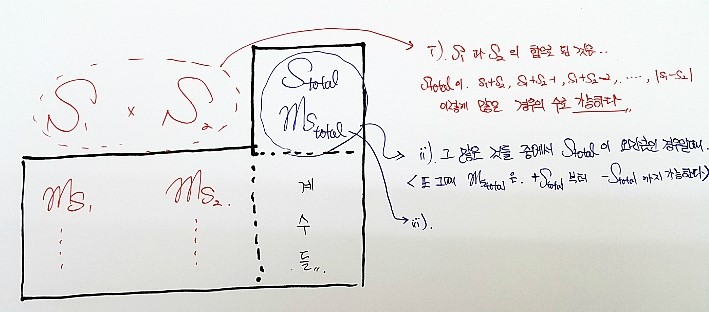 S₁ x S₂
Stotal
mstotal
ms₁ ms₂.
계
수
들,,
i). S₁ 과 S₂ 의 합으로 된 것은...
Stotal이. S₁+S₂, S₁+S₂-1, S₁+S₂-2, ...., |S₁-S₂|
이렇게 많은 경우의 수로 가능하다,,
ii). 그 많은 것들 중에서 Stotal 이
<또 그때 mstotal 은. +Stotal 부터 -Stotal 까지 가능하다>
iii).